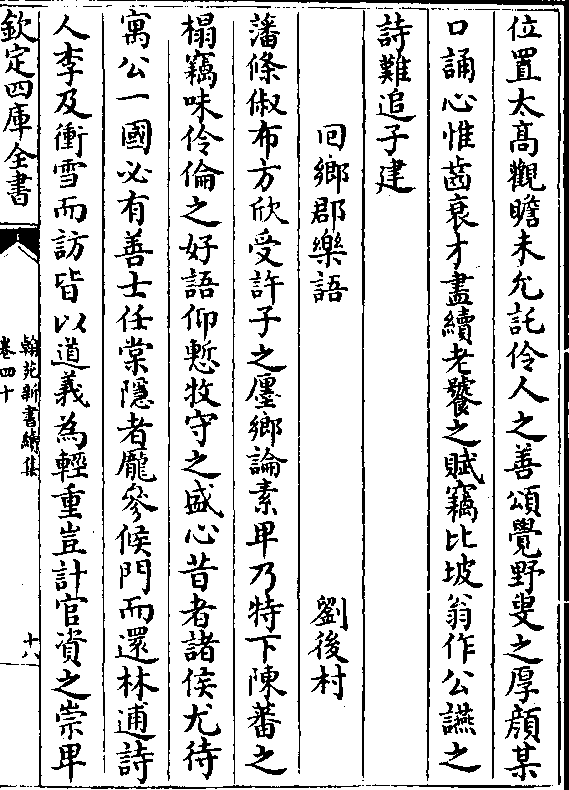 位置太高觀瞻未允託伶人之善頌覺野叟之厚顔某
口誦心惟齒衰才盡續老饕之賦竊比坡翁作公讌之
詩難追子建
回鄉郡樂語　劉後村
藩條俶布方欣受許子之廛鄉論素卑乃特下陳蕃之
榻竊味伶倫之好語仰慙牧守之盛心昔者諸侯尤待
寓公一國必有善士任棠隱者龎參候門而還林逋詩
人李及衝雪而訪皆以道義為輕重豈計官資之崇卑
欽定四庫全書
翰苑新書續集
卷四十
十八